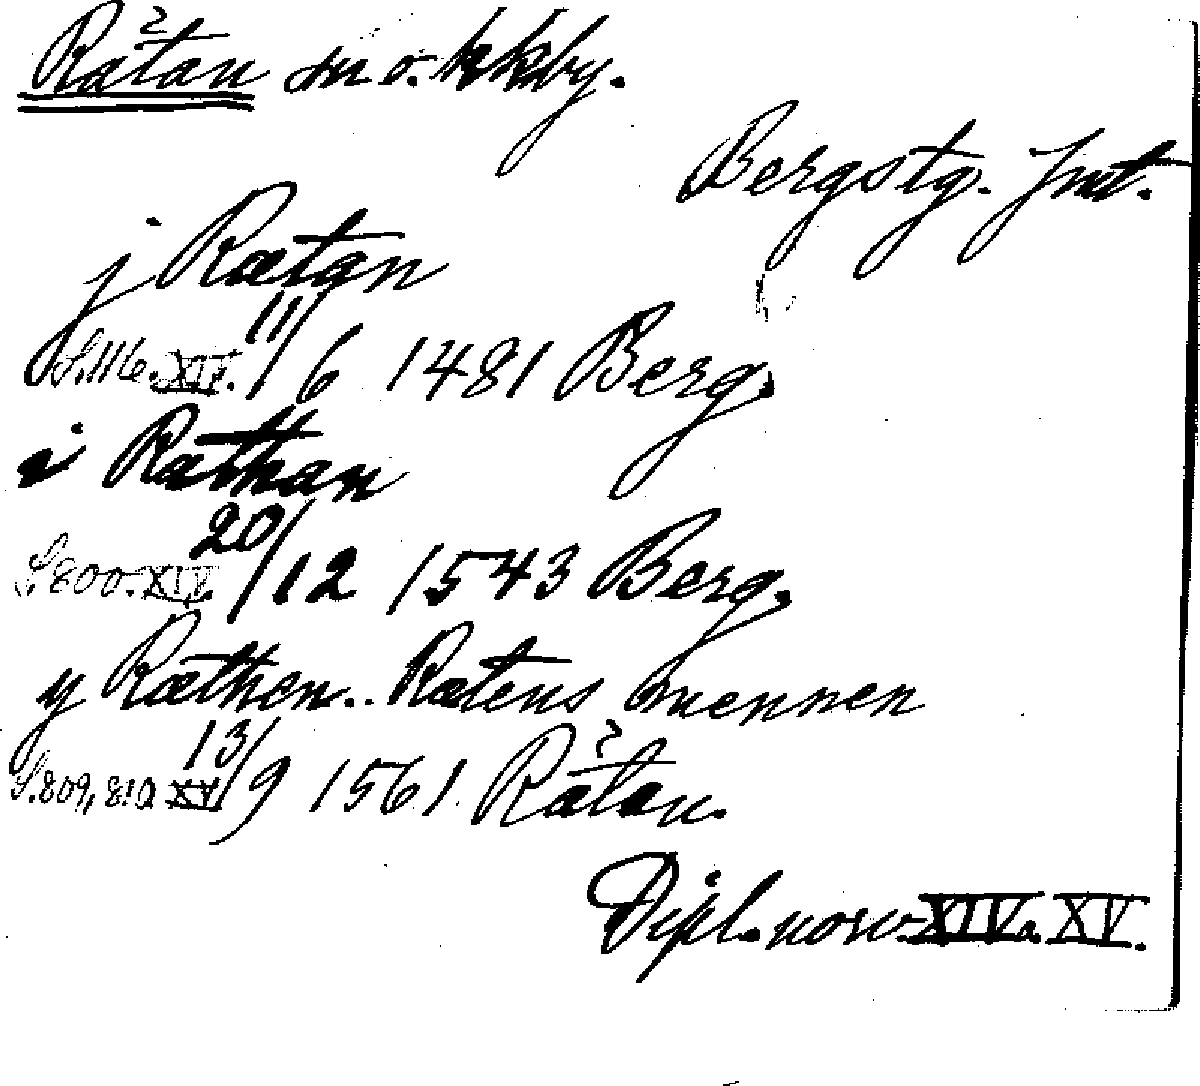 Rätan sn o. kkby.
Bergs tg. Jmt.
j Rætan
S. 116. XIV. 11/6 1481 Berg.
i Ræthan
S. 800. XIV. 20/12 1543 Berg.
y Ræthen.. Rætens mennen
S. 809, 810 XV 13/9 1561. Rätan.
Dipl. norv. XIV a. XV.